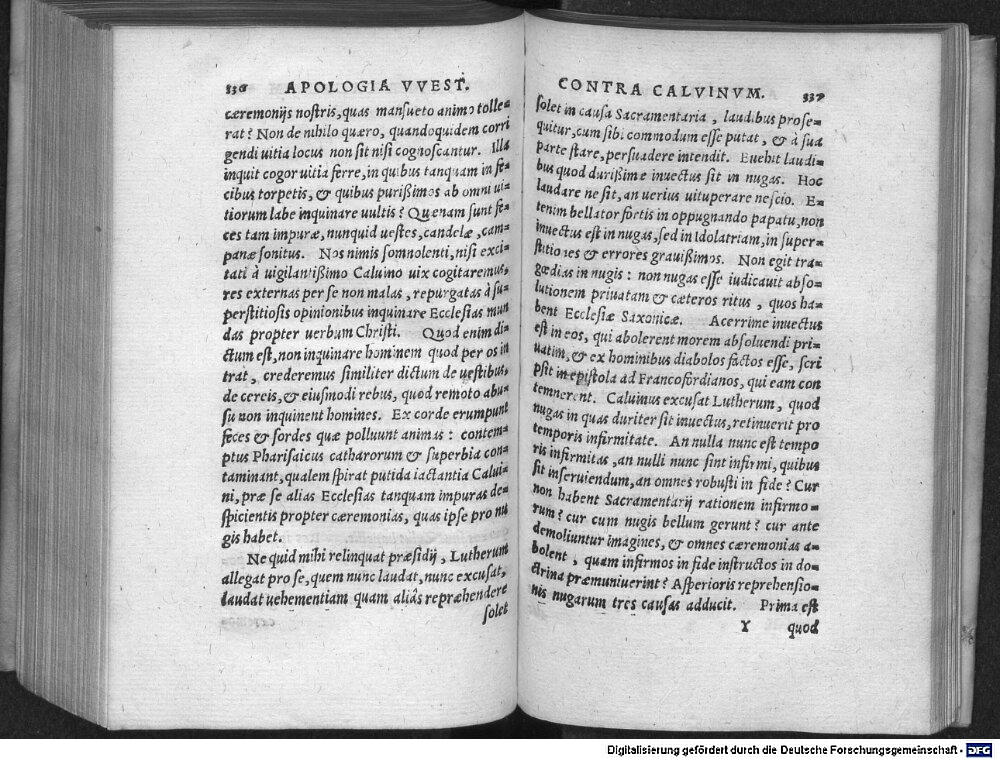 336 APOLOGIA VVEST.
cæremonijs nostris, quas mansueto animo tolle-
rat? Non de nihilo quæro, quandoquidem corri
gendi uitia locus non sit nisi cognoscantur. Illa
inquit cogor uitia ferre, in quibus tanquam in fe-
cibus torpetis, & quibus purißimos ab omni ui-
tiorum labe inquinare uultis? Quænam sunt fe-
ces tam impuræ, nunquid uestes, candelæ, cam-
panæ sonitus. Nos nimis somnolenti, nisi exci-
tati à uigilantißimo Caluino uix cogitaremus,
res externas per se non malas, repurgatas à su-
perstitiosis opinionibus inquinare Ecclesias mun
das propter uerbum Christi. Quod enim di-
ctum est, non inquinare hominem quod per os in
trat, crederemus similiter dictum de uestibus,
de cereis, & eiusmodi rebus, quod remoto abu-
su non inquinent homines. Ex corde erumpunt
feces & sordes quæ polluunt animas: contem-
ptus Pharisaicus catharorum & superbia con-
taminant, qualem spirat putida iactantia Calui-
ni, præ se alias Ecclesias tanquam impuras de-
spicientis propter cæremonias, quas ipse pro nu
gis habet.
Ne quid mihi relinquat præsidij, Lutherum
allegat pro se, quem nunc laudat, nunc excusat,
laudat uehementiam quam aliâs repræhendere
solet
CONTRA CALVINVM. 337
solet in causa Sacramentaria, laudibus prose-
quitur, cum sibi commodum esse putat, & à sua
parte stare, persuadere intendit. Euehit laudi-
bus quod durißime inuectus sit in nugas. Hoc
laudare ne sit, an uerius uituperare nescio. E-
tenim bellator fortis in oppugnando papatu, non
inuectus est in nugas, sed in Idolatriam, in super-
stitiones & errores grauißimos. Non egit tra-
gœdias in nugis: non nugas esse iudicauit abso-
lutionem priuatam & cæteros ritus, quos ha-
bent Ecclesiæ Saxonicæ. Acerrime inuectus
est in eos, qui abolerent morem absoluendi pri-
uatim, & ex hominibus diabolos factos esse, scri
psit in epistola ad Francofordianos, qui eam con
temnerent. Caluinus excusat Lutherum, quod
nugas in quas duriter sit inuectus, retinuerit pro
temporis infirmitate. An nulla nunc est tempo
ris infirmitas, an nulli nunc sint infirmi, quibus
sit inseruiendum, an omnes robusti in fide? Cur
non habent Sacramentarij rationem infirmo-
rum? cur cum nugis bellum gerunt? cur ante
demoliuntur imagines, & omnes cæremonias a-
bolent, quam infirmos in fide instructos in do-
ctrina præmuniuerint? Asperioris reprehensio-
nis nugarum tres causas adducit. Prima est
Y quod
Digitalisierung gefördert durch die Deutsche Forschungsgemeinschaft - DFG